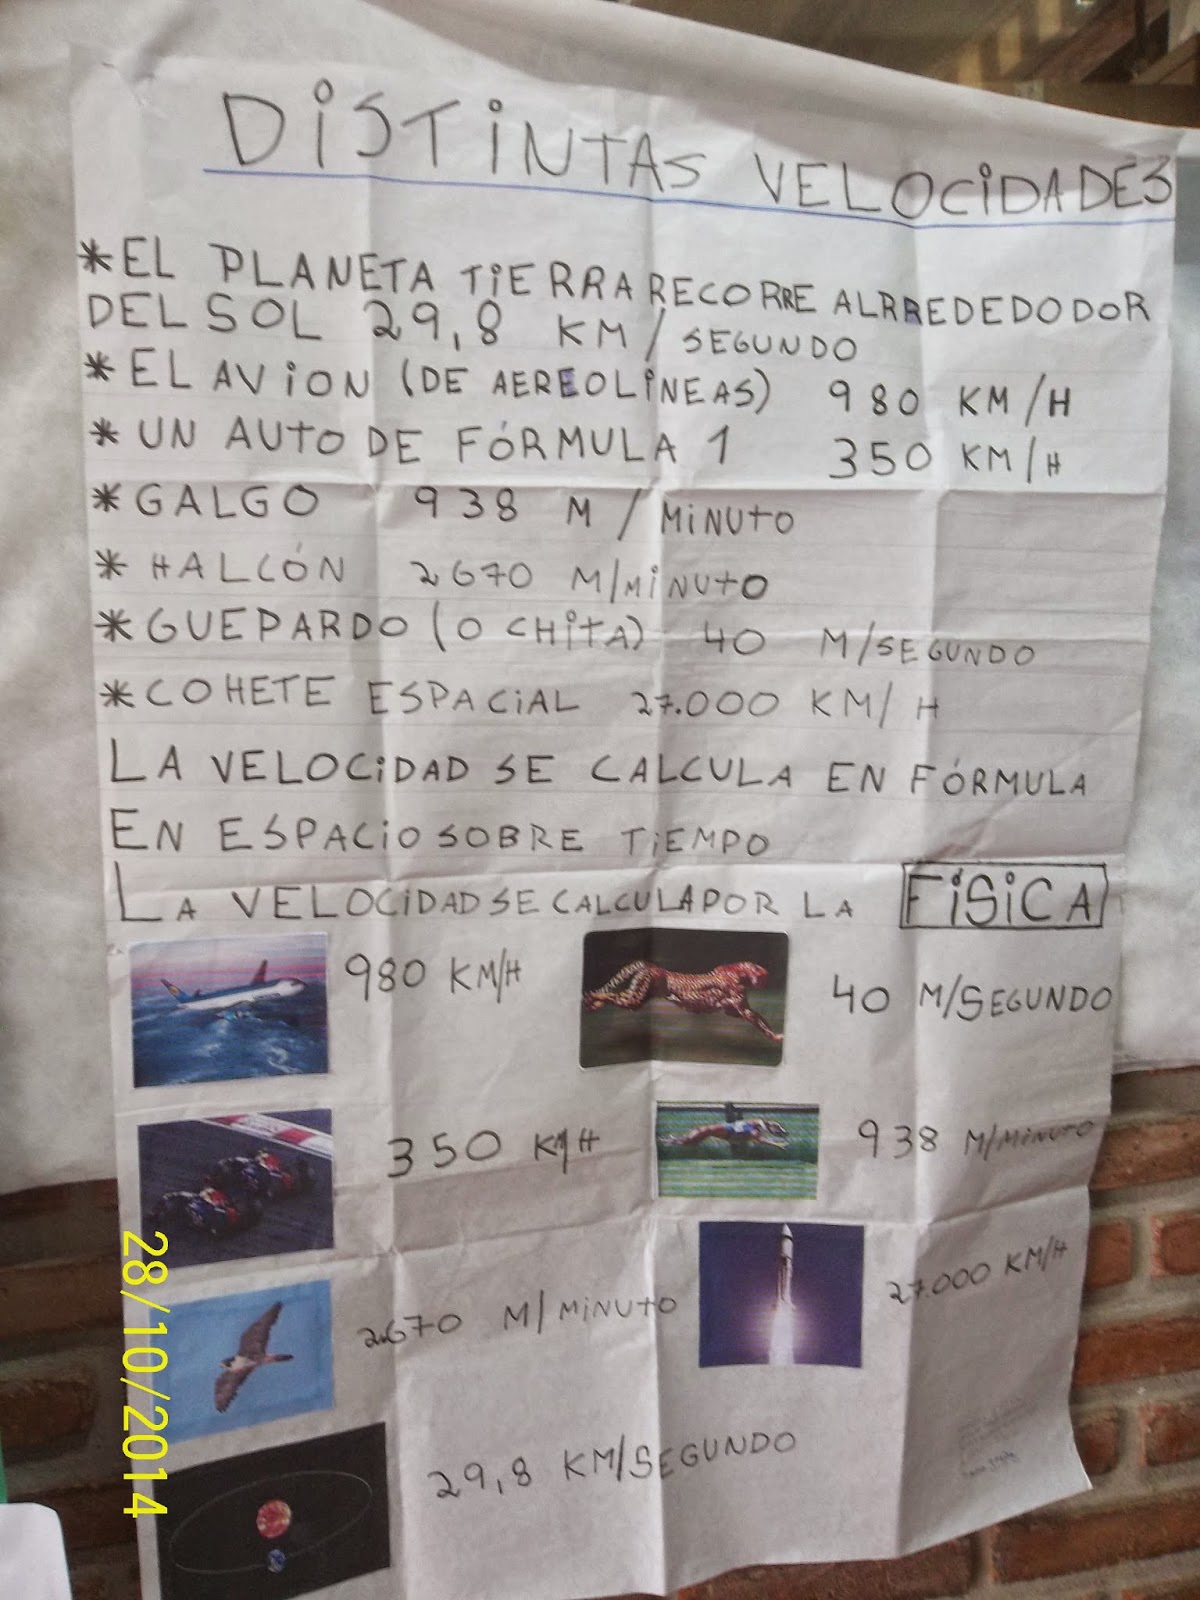 DISTINTAS VELOCIDADES
*EL PLANETA TIERRA RECORRE ALRREDEDODOR
DEL SOL 29,8 KM/SEGUNDO
*EL AVION (DE AEREOLINEAS) 980 KM/H
*UN AUTO DE FÓRMULA 1 350 KM/H
*GALGO 938 M/MINUTO
*HALCÓN 2670 M/MINUTO
*GUEPARDO (O CHITA) 40 M/SEGUNDO
*COHETE ESPACIAL 27.000 KM/H
LA VELOCIDAD SE CALCULA EN FÓRMULA
EN ESPACIO SOBRE TIEMPO
LA VELOCIDAD SE CALCULA POR LA FÍSICA
980 KM/H
40 M/SEGUNDO
350 KM/H
938 M/MINUTO
2.670 M/MINUTO
27.000 KM/H
29,8 KM/SEGUNDO
28/10/2014